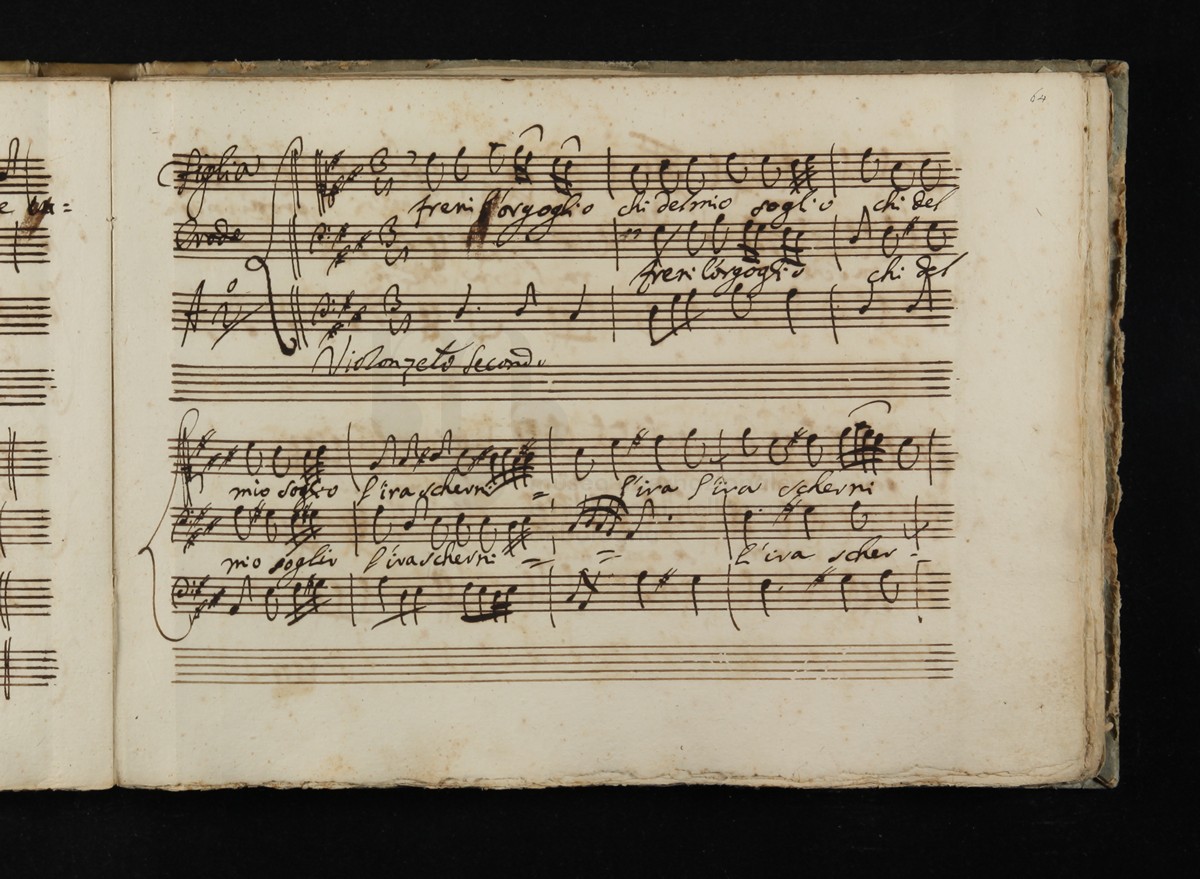 64
figlia
freni l'orgoglio chi del mio soglio chi del
Erode
freni l'orgoglio chi del
Violonzelo secondo
mio soglio l'ira scherni = l'ira l'ira scherni
mio soglio l'ira scherni = = l'ira scher =